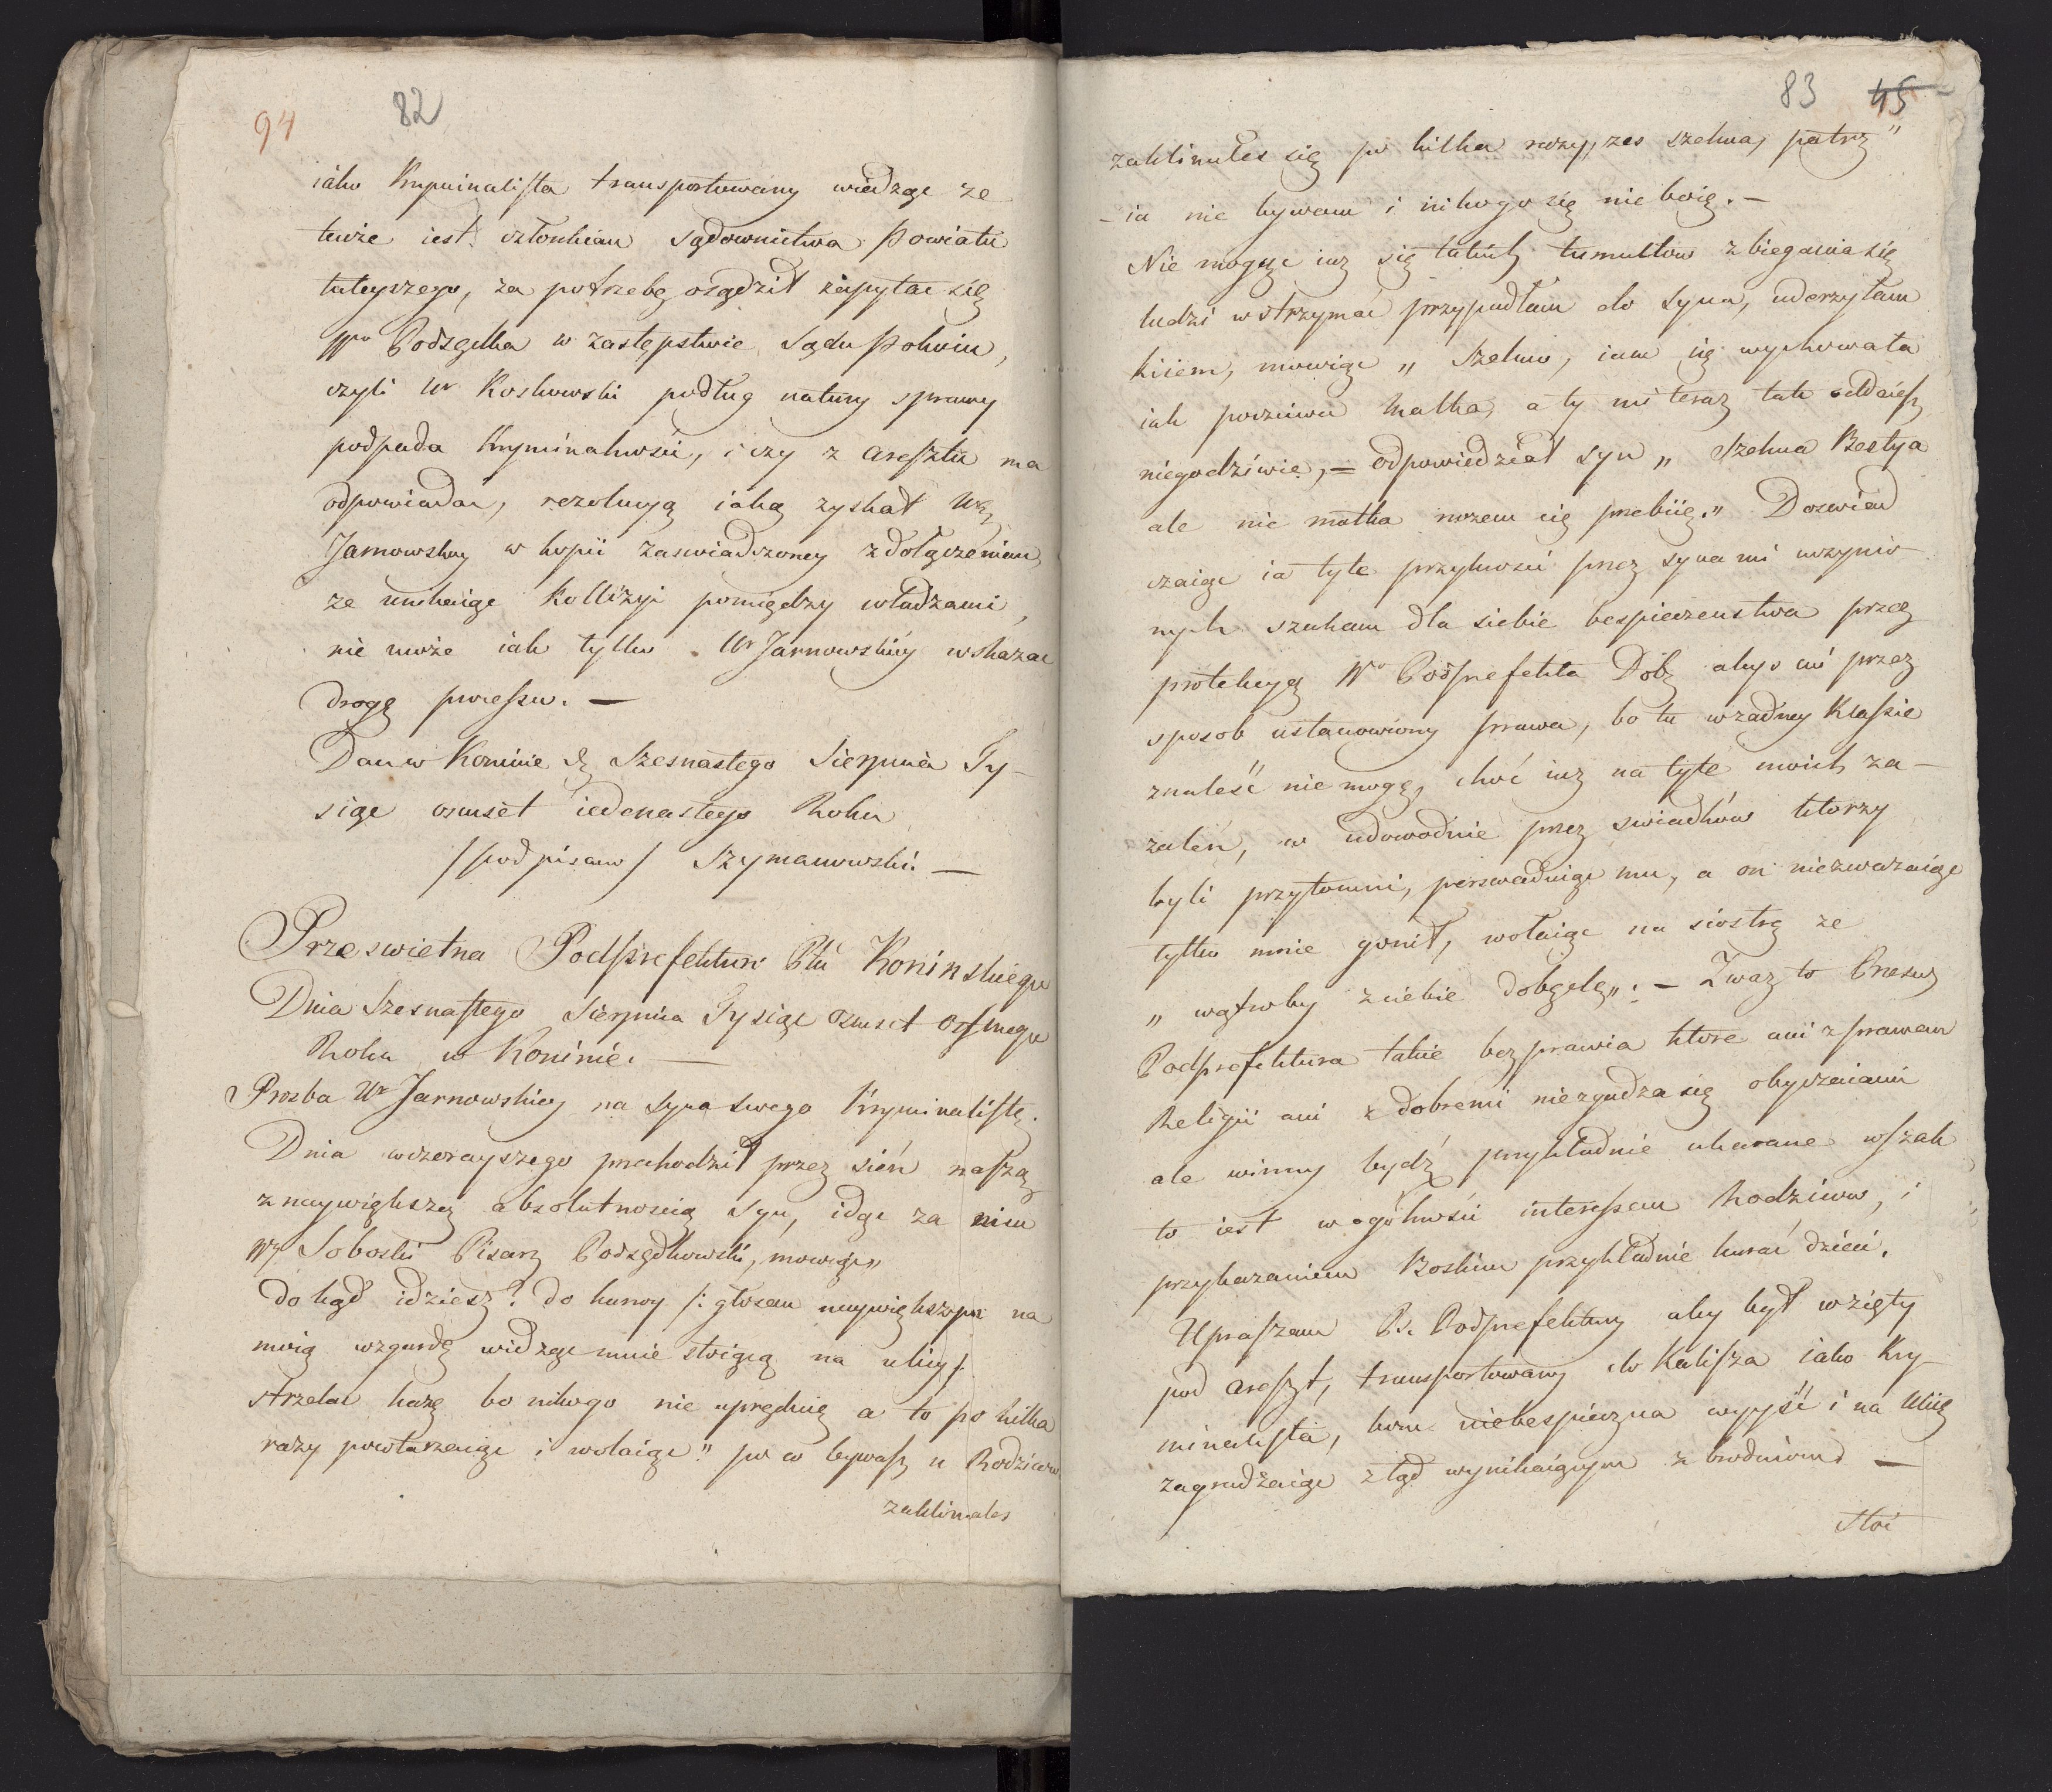 94 82
iako Krymnalista transportowany wiedząc ze
tenże iest członkiem sądownictwa Powiatu
tuteyszego, za potrzebę osądził zapytac się
Wo Podsędka w zastępstwie Sądu Pokoiu,
czyli Ur Koskowski podług natury sprawy
podpada Kryminalności, i czy z aresztu ma
odpowiadac, rezolucyą iaką zyskał
Jarnowskiey w kopii zaswiadczoney z dołączeniem
ze unikaiąc Kollizyi pomiędzy władzami,
nie może iak tylko Ur Jarnowskiey wskazac
drogę processu. —
Dan w Koninie d. Szesnastego Sierpnia Ty-
siąc osmset iedenastego Roku
/podpisano/ Szymanowski. —
Przeswietna Podprefekturo Ptu Koninskiego
Dnia Szesnastego Sierpnia Tysiąc osmset osmego
Roku w Koninie. —
Prozba Ur Jarnowskiey na syna swego Kryminalistę.
Dnia wczorayszego przechodził przez sień naszą
z naywiększą absolutnoscią Syn, idąc za nim
Soboski Pisarz Podsędkowski, mowiąc„
do kąd idziesz? do kurwy /: głosem naywiększym na
moią wzgardę widząc mnie stoiącą na ulicy/
strzelac każę bo nikogo nie a to po kilka
razy powtarzaiąc i wołaiąc" po co bywasz u Rodziców
zaklinałes
83 45
zaklinałes się po kilka razy, zes szelma, patrz"
- ia nie bywam i nikogo się nie boię. —
Nie mogąc iuz się takich tumultow zbiegania się
ludzi wstrzymać przypadłam do Syna, uderzyłam
kiiem, mowiąc „ Szelmo, iam cię wychowała
iak poczciwa Matka, a ty mi teraz tak oddaiesz
niegodziwie, = odpowiedział syn „ Szelma Bestya
ale nie matka nożem cię przebiię." Doswiad
czaiąc ia tyle przykrosci przez syna mi uczynio-
nych szukam dla siebie bespieczenstwa przez
protekcyą Wo Podprefekta Dobr. abyo mi przez
sposob ustanowiony prawa, bo tu w żadney Klassie
znaleść nie mogę, choć iuz na tyle moich za-
żaleń, w udowodnie przez swiadków ktorzy
byli przytomni, perswaduiąc mu, a on niezważaiąc
tylko mnie gonił, wołaiąc na siostrę ze
„ wątroby z ciebie dobędę„: — Zważ to Przesw.
Podprefektura takie bezprawia ktore ani z prawem
Religii ani z dobremi niezgadza się obyczaiami
ale winny bydź przykładnie ukarane wszak
to iest w ogólnosci interessem Rodziców, i
przykazaniem Boskim przykładnie karać dzieci.
Upraszam Ps. Podprefektury aby był wzięty
pod areszt, transportowany do Kalisza iako Kry-
minalista, bom niebespieczna wyyść i na Ulicę
zagradzaiąc ztąd wynikaiącym zbrodniom. —
Stoi